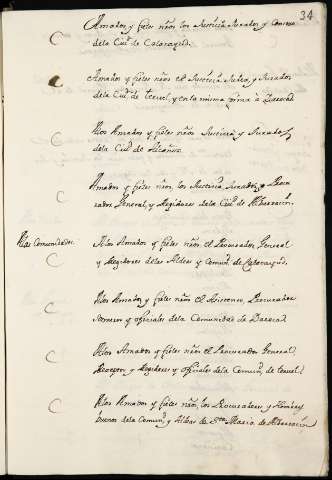 34
Amados, y fieles nřos los Justicia Jurados y Concejo
dela Ciu.d de Calatayud.
Amados y fieles nřos el Justicia, Juezo, y Jurados
dela Ciu.d de teruel, y en la misma forma à Daroca
Alos Amados y fieles nřos Justicia y Jurados
dela Ciu.d de Alcañiz.
Amados y fieles nřos los Justicia Jurados, y Procu
rador General, y Regidores dela Ciu.d de Albarracin.
A las Comunidades.
Alos Amados y fieles nřos el Procurador General
y Regidores delas Aldeas y Comun.d de Calatayud.
Alos Amados, y fieles nřos el Procurador
y oficiales dela Comunidad de Daroca
Alos Amados y fieles nřos el Procurador General,
Receptor y Regidores y oficiales dela Comun.d de teruel.
Alos Amados y fieles nřos, los Procuradores, y Hombres
buenos dela Comun.d y Aldeas de S.ta Maria de Albarracin